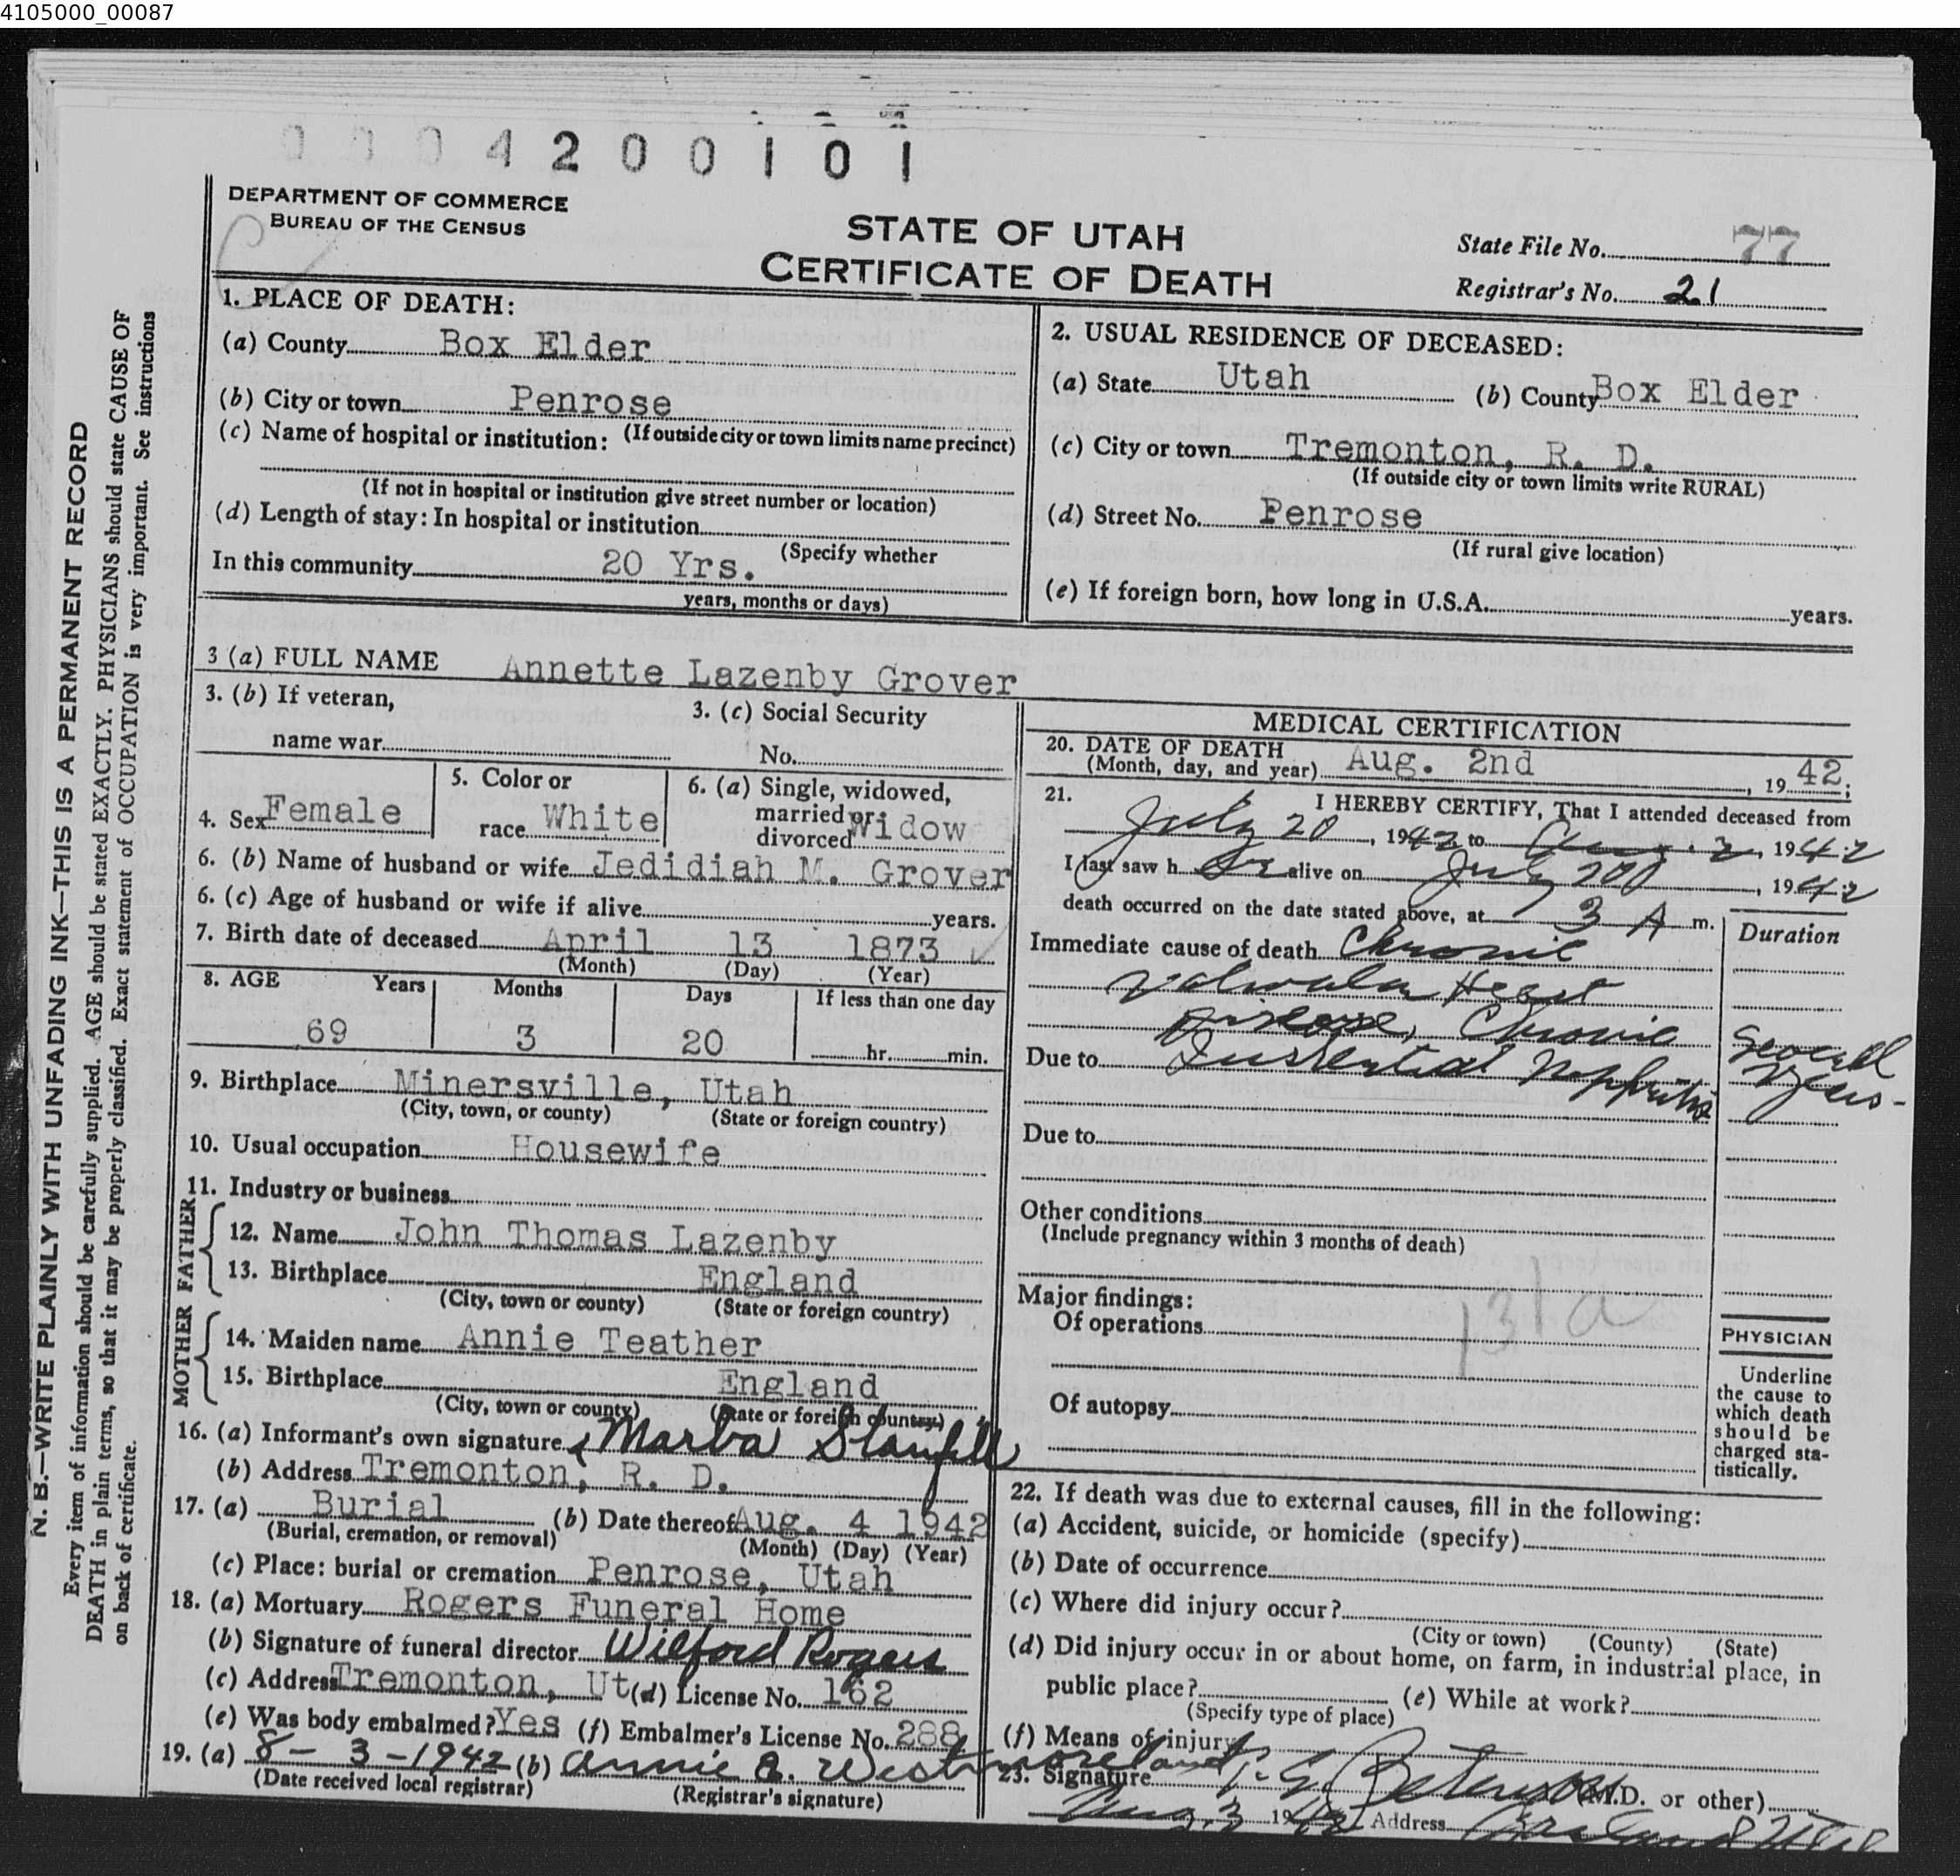 4105000_00087
0004200101
DEPARTMENT OF COMMERCE
BUREAU OF THE CENSUS
STATE OF UTAH
CERTIFICATE OF DEATH
State File No. 77
Registrar's No. 21
N. B.—WRITE PLAINLY WITH UNFADING INK—THIS IS A PERMANENT RECORD
Every item of information should be carefully supplied. AGE should be stated EXACTLY. PHYSICIANS should state CAUSE OF
DEATH in plain terms, so that it may be properly classified. Exact statement of OCCUPATION is very important. See instructions
on back of certificate.
1. PLACE OF DEATH:
(a) County Box Elder
(b) City or town Penrose
(c) Name of hospital or institution: (If outside city or town limits name precinct)
(If not in hospital or institution give street number or location)
(d) Length of stay: In hospital or institution
(Specify whether
In this community 20 Yrs.
years, months or days)
2. USUAL RESIDENCE OF DECEASED:
(a) State Utah (b) County Box Elder
(c) City or town Tremonton, R. D.
(If outside city or town limits write RURAL)
(d) Street No. Penrose
(If rural give location)
(e) If foreign born, how long in U.S.A. years.
3 (a) FULL NAME Annette Lazenby Grover
3. (b) If veteran,
name war
3. (c) Social Security
No.
4. Sex Female
5. Color or
race White
6. (a) Single, widowed,
married or
divorced Widow
6. (b) Name of husband or wife Jedidiah M. Grover
6. (c) Age of husband or wife if alive years.
7. Birth date of deceased April 13 1873
(Month) (Day) (Year)
8. AGE Years Months Days If less than one day
69 3 20 hr. min.
9. Birthplace Minersville, Utah
(City, town, or county) (State or foreign country)
10. Usual occupation Housewife
11. Industry or business
FATHER
12. Name John Thomas Lazenby
13. Birthplace England
(City, town or county) (State or foreign country)
MOTHER
14. Maiden name Annie Teather
15. Birthplace England
(City, town or county) (State or foreign country)
16. (a) Informant's own signature Marba Stanfill
(b) Address Tremonton, R. D.
17. (a) Burial (b) Date thereof Aug. 4 1942
(Burial, cremation, or removal) (Month) (Day) (Year)
(c) Place: burial or cremation Penrose, Utah
18. (a) Mortuary Rogers Funeral Home
(b) Signature of funeral director Wilford Rogers
(c) Address Tremonton, Ut (d) License No. 162
(e) Was body embalmed? Yes (f) Embalmer's License No. 288
19. (a) 8-3-1942 (b) Annie E. Westmoreland
(Date received local registrar) (Registrar's signature)
MEDICAL CERTIFICATION
20. DATE OF DEATH
(Month, day, and year) Aug. 2nd, 1942;
21. I HEREBY CERTIFY, That I attended deceased from
July 20, 1942 to Aug. 2, 1942
I last saw h er alive on July 20, 1942
death occurred on the date stated above, at 3 A m.
Duration
Immediate cause of death Chronic
Valvular Heart
Disease, Chronic
Due to Interstitial Nephritis
Several
Years-
Due to
Other conditions
(Include pregnancy within 3 months of death)
131a
Major findings:
Of operations
Of autopsy
PHYSICIAN
Underline
the cause to
which death
should be
charged sta-
tistically.
22. If death was due to external causes, fill in the following:
(a) Accident, suicide, or homicide (specify)
(b) Date of occurrence
(c) Where did injury occur?
(City or town) (County) (State)
(d) Did injury occur in or about home, on farm, in industrial place, in
public place? (e) While at work?
(Specify type of place)
(f) Means of injury
23. Signature (M.D. or other)
Aug. 3 1942 Address Garland Utah